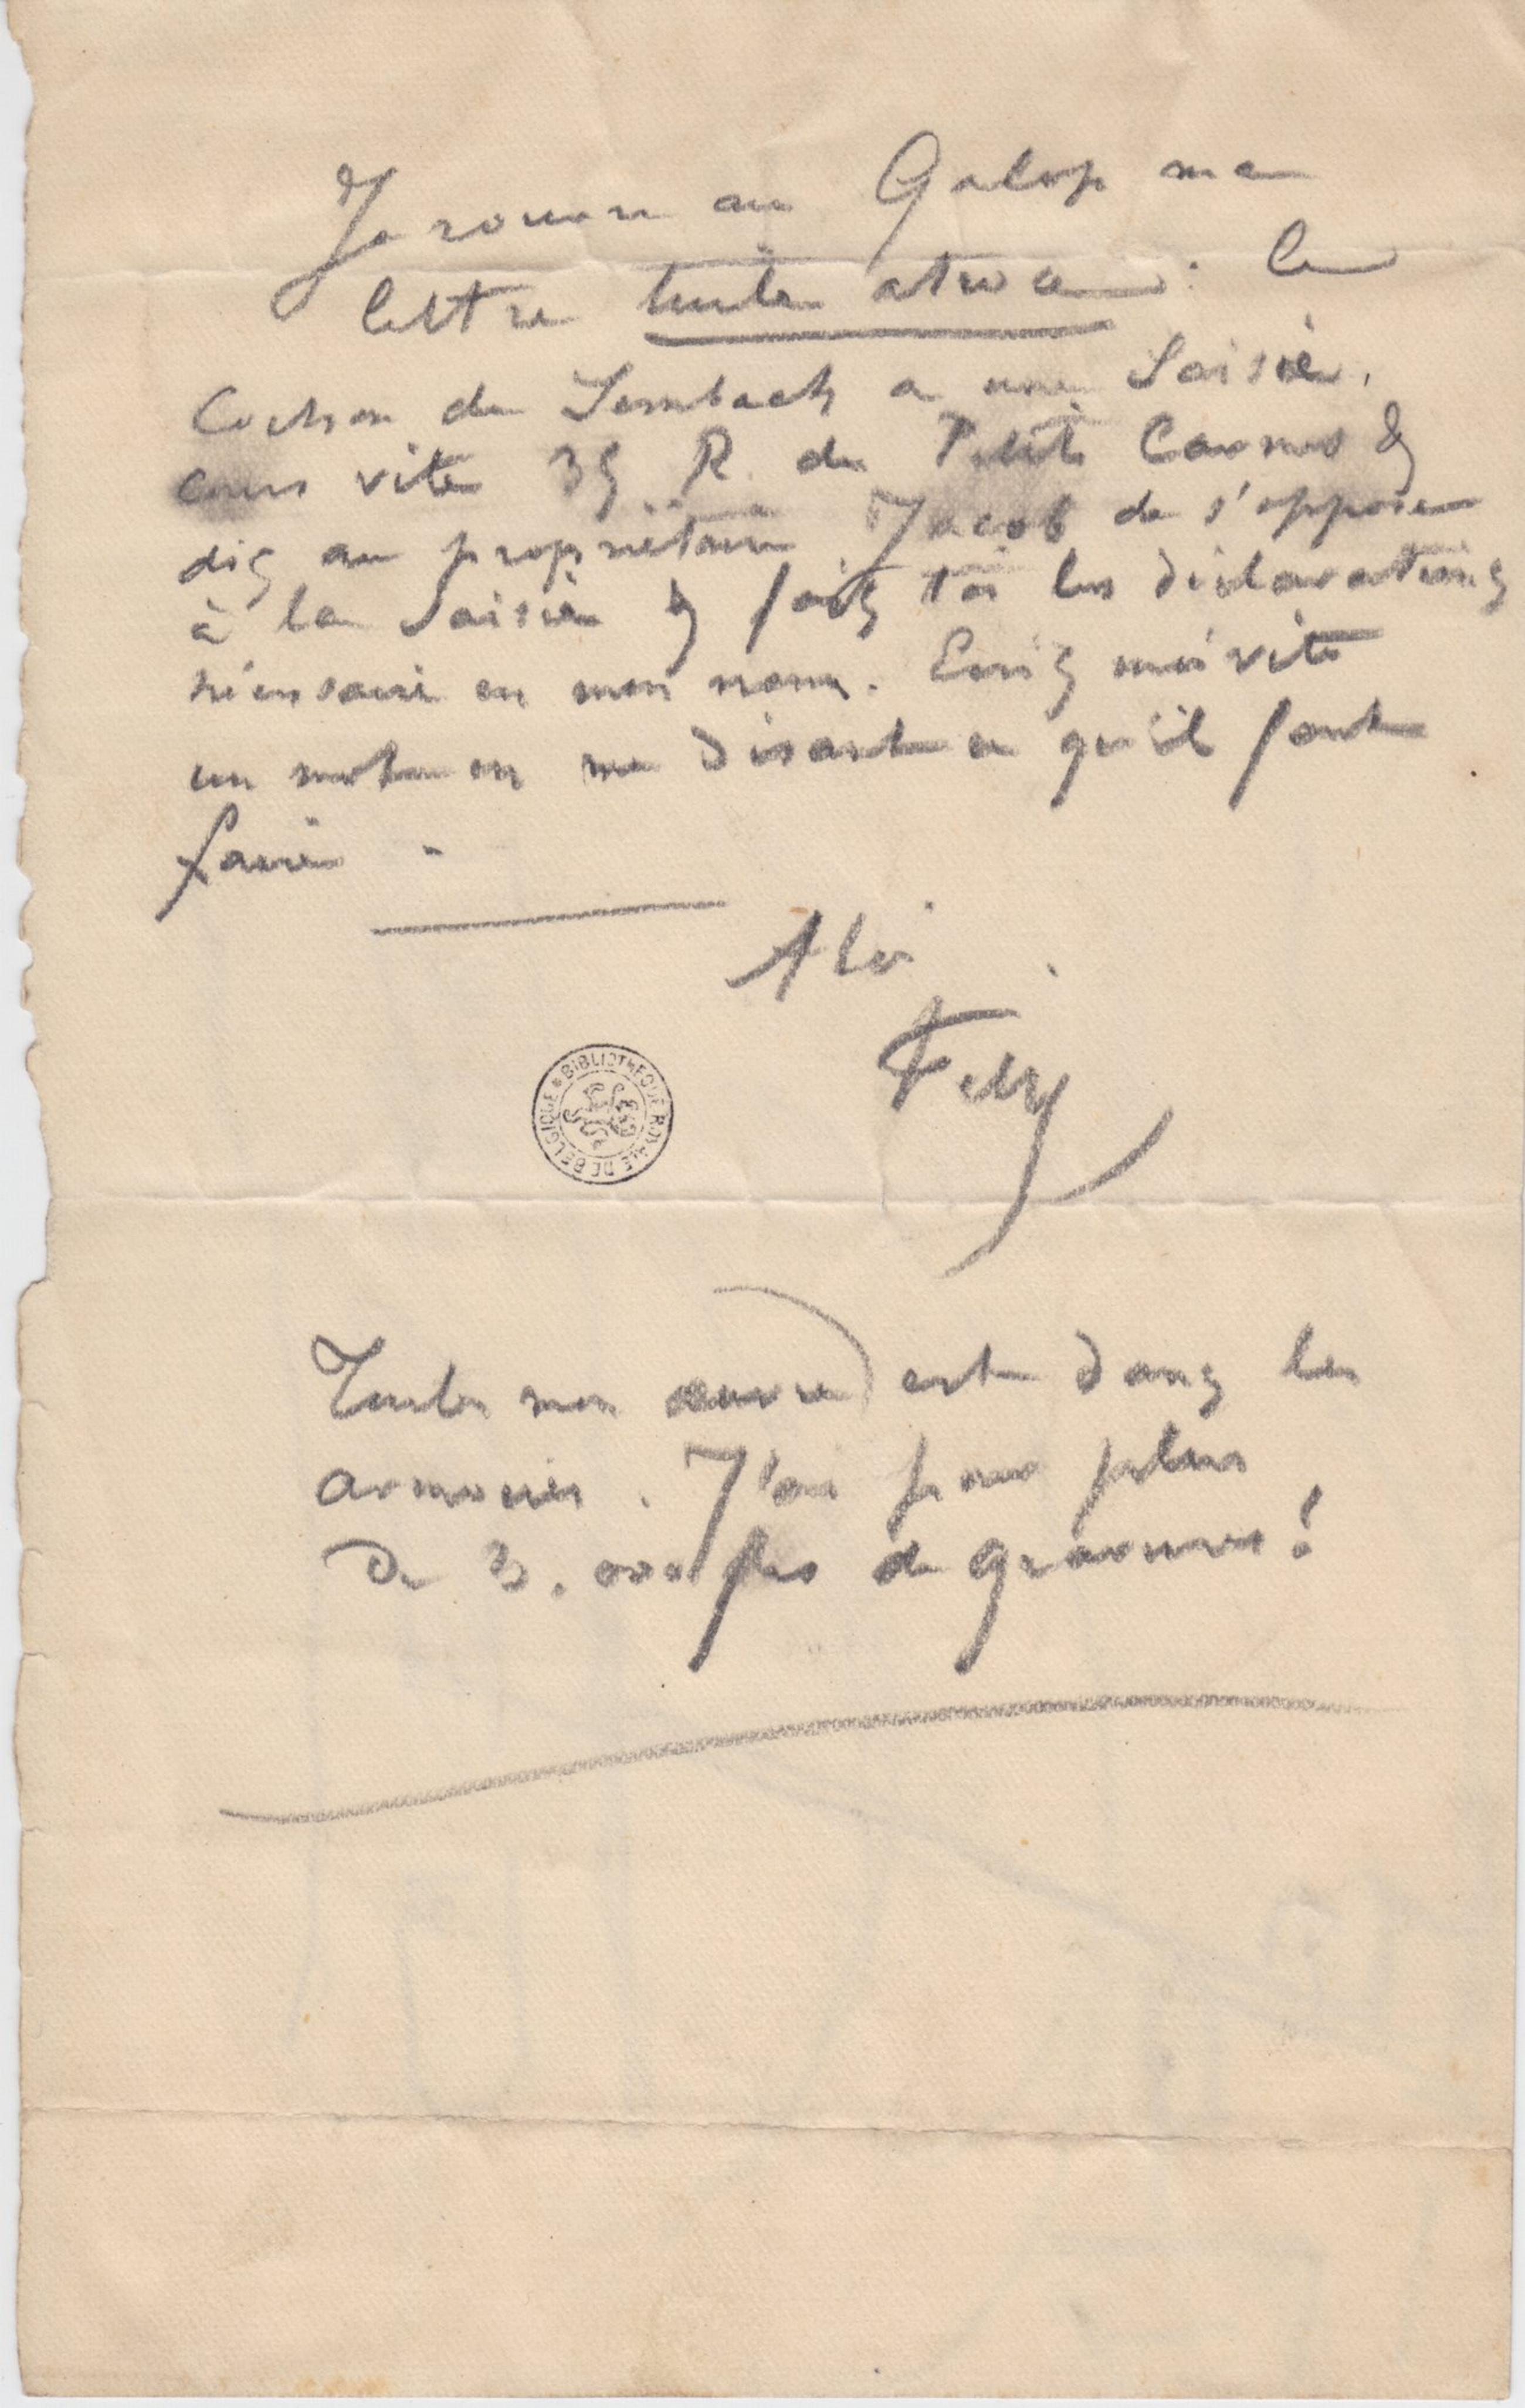 Je rouvre au Galop ma
lettre tuile atroce : le
Cochon de Sembach a une Saisie.
cours vite 39 R. du Petits Carmes &
dis au propriétaire Jacob de s'opposer
à la Saisie & fais toi les déclarations
nécessaire en mon nom. Ecris moi vite
un mot en me disant ce qu'il faut
faire.
A toi
Fély
BIBLIOTHEQUE ROYALE DE BELGIQUE
Toute mon œuvre est dans les
armoires. J'ai pour plus
De 3.000 frs de gravures!